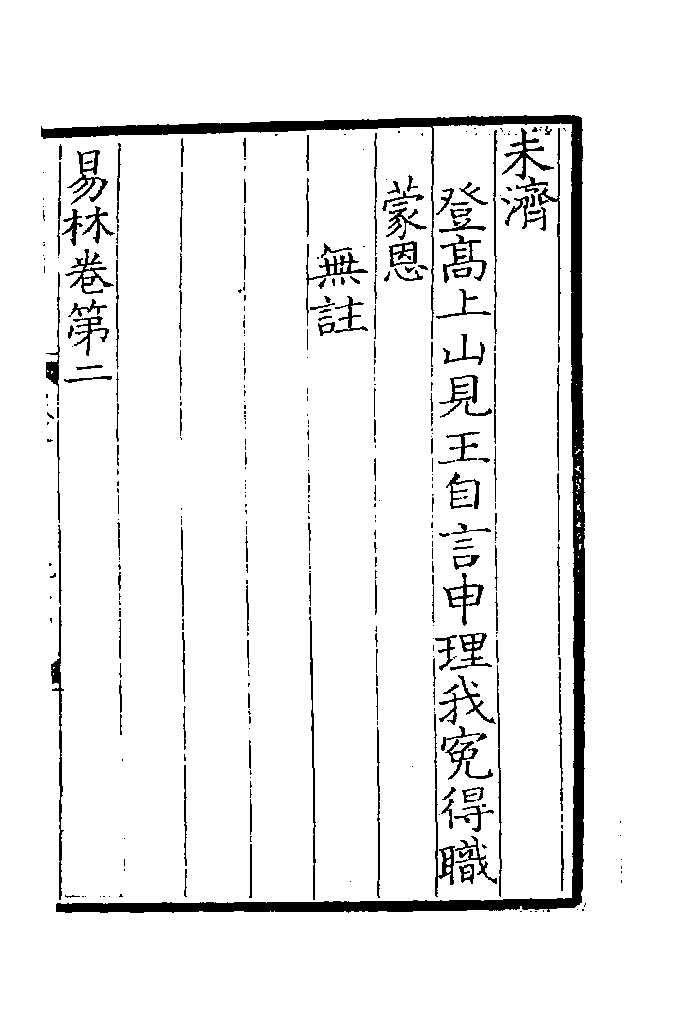 未濟
登髙上山見王自言申理我寃得職
蒙恩
無註
易林卷第二